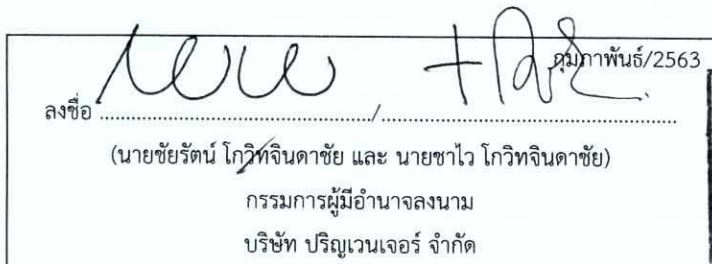 กุมภาพันธ์/2563
ลงชื่อ ......................................................./...........................................................
(นายชัยรัตน์ โกวิทจินดาชัย และ นายชาไว โกวิทจินดาชัย)
กรรมการผู้มีอำนาจลงนาม
บริษัท ปริญเวนเจอร์ จำกัด